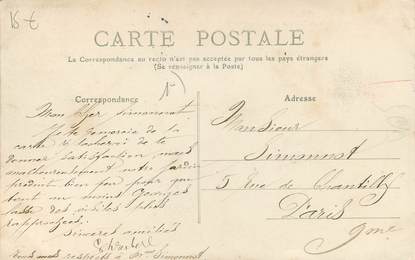 15 €
CARTE POSTALE
La Correspondance au recto n'est pas acceptée par tous les pays étrangers
(Se renseigner à la Poste)
Correspondance
Adresse
Mon cher Simonnot
Je te remercie de la
carte et de
donner satisfaction mais
malheureusement notre jardin
produit bien peu pour que
tout au moins Georges
fasse des visites plus
rapprochées.
Sincères amitiés
respects à Mme Simonnot
Monsieur
Simonnot
5 Rue de Chantilly
Paris
9me